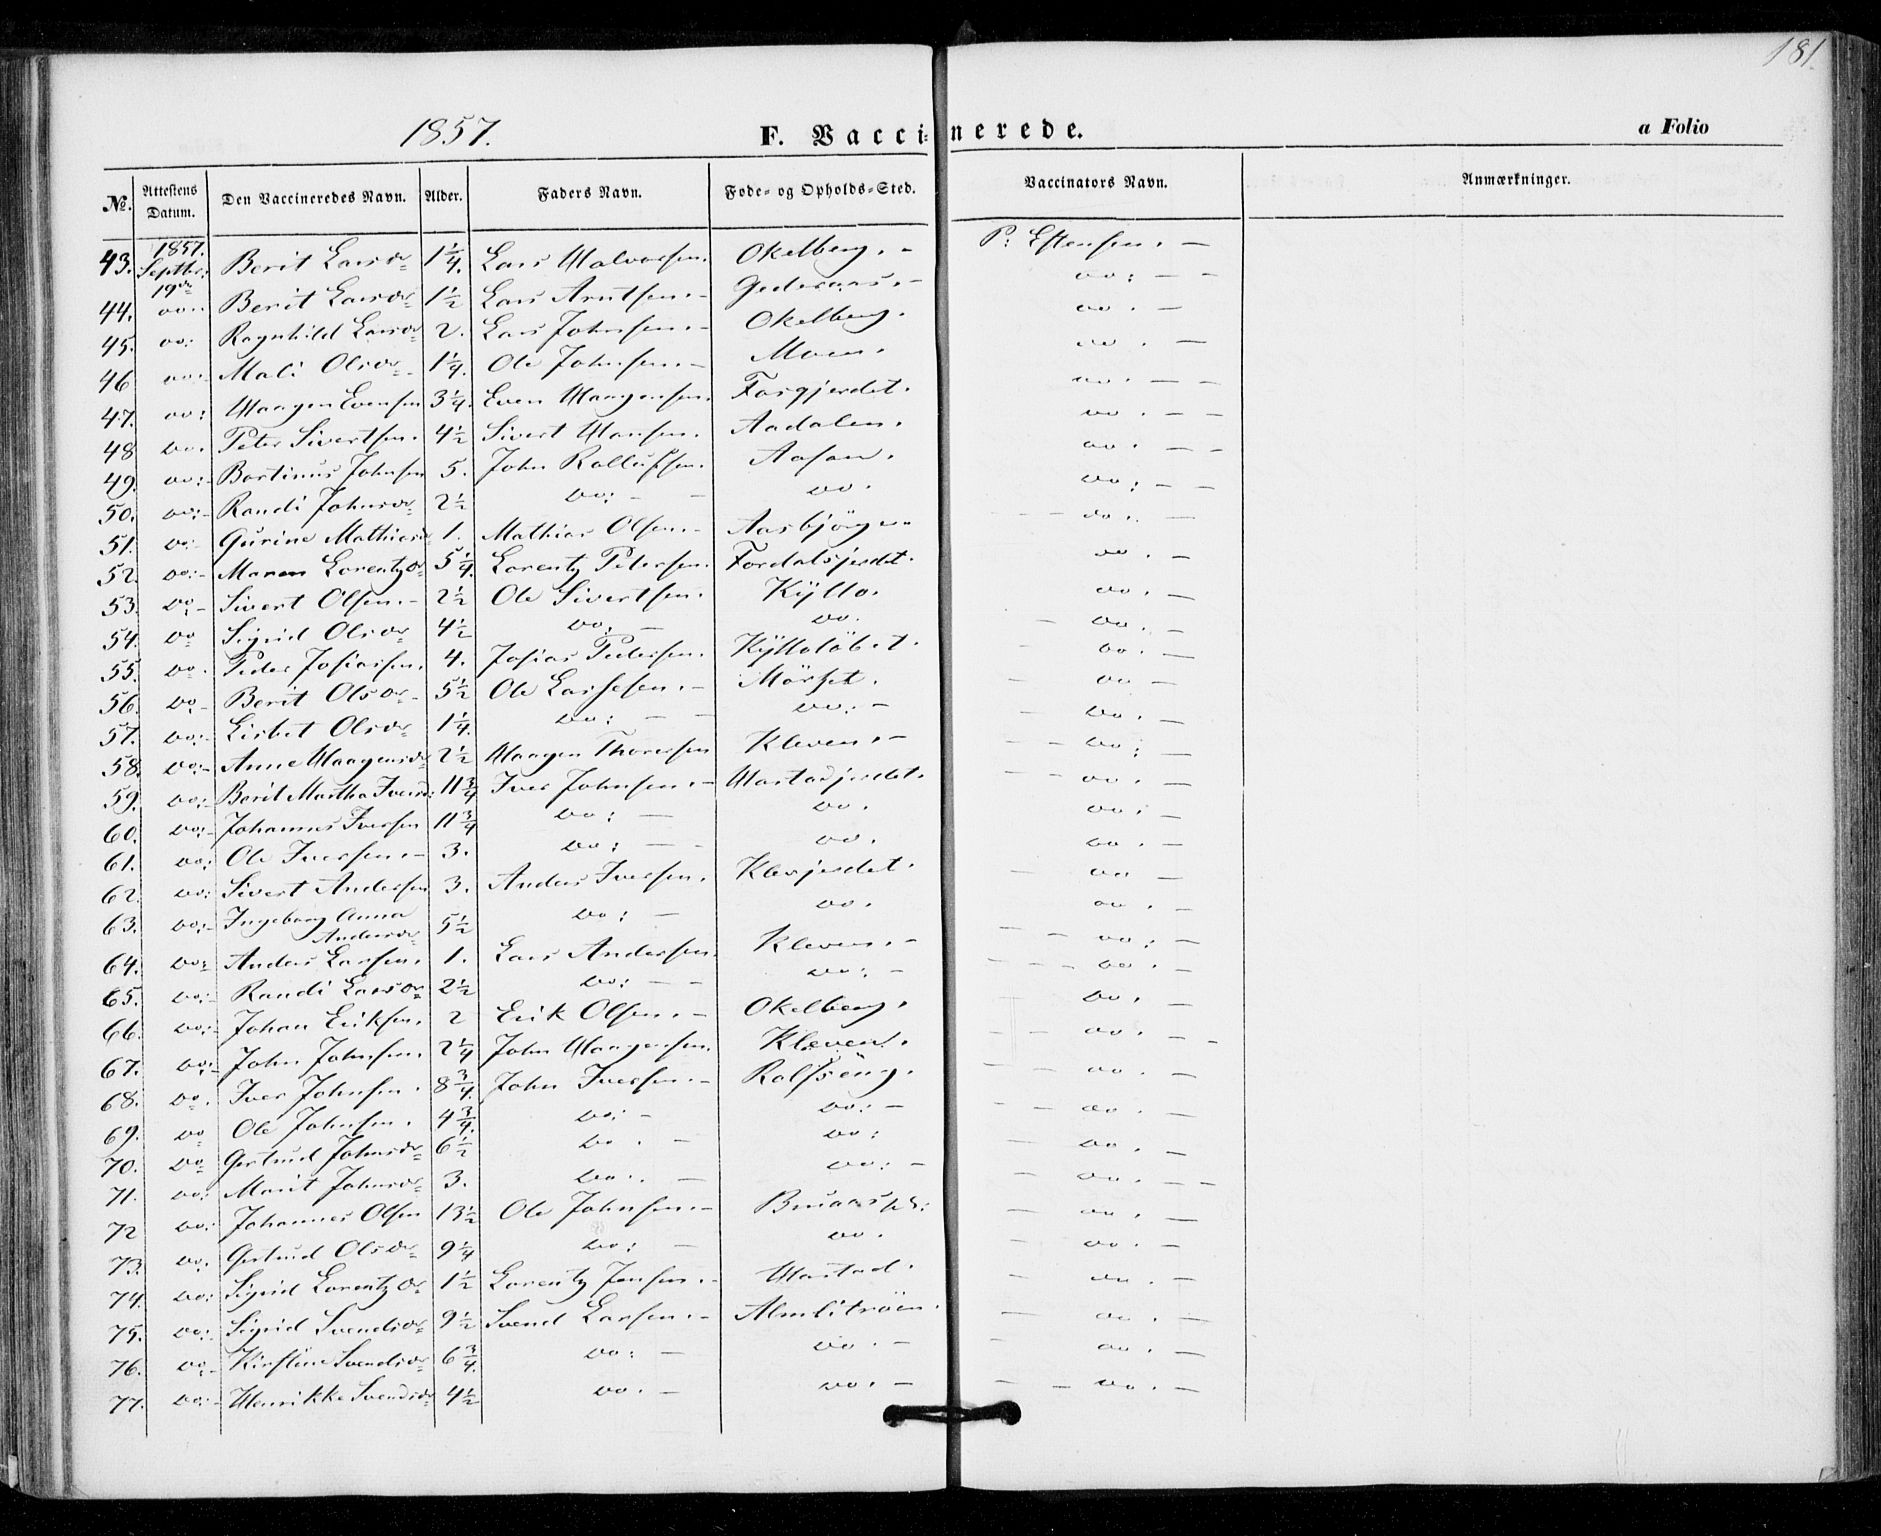 181.
1857. F. Vaccinerede. a Folio
№. Attestens Datum. Den Vaccineredes Navn. Alder. Faders Navn. Føde- og Opholds-Sted. Vaccinators Navn. Anmærkninger.
43. 1857. Septbr. 19de Berit Larsdr 1 1/4. Lars Halvorsen. Okelberg. - P: Estensen. -
44. do: Berit Larsdr 1 1/2 Lars Arntsen. - Gederaas. - do: - -
45. do: Ragnhild Larsdr 2. Lars Johnsen. - Okelberg. do. -
46 do: Mali Olsdr 1 1/4. Ole Johnsen. - Moen. do. -
47. do: Haagen Evensen 3 1/4. Even Haagensen. Forgjerdet. do. - -
48 do. Peter Sivertsen. 4 1/2 Sivert Hansen. Aadalen. do. - -
49. do: Bortinus Johnsen 5. John Rollufsen. Aasan. do. - -
50. do: Randi Johnsdr 2 1/2 do: - - do. do: - -
51. do: Gurine Mathiasdr 1. Mathias Olsen. - Aasbjørgen do. -
52. do: Maren Lorentzdr 5 1/4. Lorentz Petersen. Fordalsjerdet. do. -
53. do - Sivert Olsen. - 2 1/2 Ole Sivertsen. Kyllo. do. -
54. do Sigrid Olsdr 4 1/2 do. - do. do. -
55. do. Peder Josiassen. 4. Josias Pedersen. Kylloløbet. do. -
56. do - Berit Olsdr 5 1/2 Ole Larsesen. - Mørset. do -
57. do: Lisbet Olsdr 1 1/4. do: - - do: - do. -
58. do: Anne Haagensdr 2 1/2 Haagen Thoresen Kleven. - do: -
59. do: Berit Martha Iversd: 11 3/4 Iver Johnsen. - Hastadjerdet. do. -
60. do: Johannes Iversen 11 3/4 do: - do. do. -
61. do: Ole Iversen. - 3. do: - - do. do. -
62. do: Sivert Andersen 3. Anders Iversen. Klevjerdet. do -
63. do: Ingeborg Anna Andersdr 5 1/2 do: - do. do. -
64. do: Anders Larsen. 1. Lars Andersen. Kleven. - do: -
65. do: Randi Larsdr 2 1/2 do: - - do: - do. -
66. do: Johan Eriksen. 2 Erik Olsen. - Okelberg. do. -
67. do: John Johnsen. 2 1/4 John Haagensen. Kleven. do. - -
68. do. Iver Johnsen. 8 3/4. John Iversen. - Rolfsøng. do. -
69. do Ole Johnsen. 4 3/4. do: - do: - do. -
70. do Gertrud Johnsdr 6 1/2 do. - do: do. -
71. do: Marit Johnsdr 3. do.. - do: - do. - -
72 do: Johannes Olsen 13 1/2 Ole Johnsen. - Bruaaspl: do. -
73. do: Gertrud Olsdr 9 1/4 do: - do. do. -
74. do: Sigrid Lorentzdr 1 1/2 Lorentz Jensen. - Hastad. do. -
75. do: Sigrid Svendsdr 9 1/2 Svend Larsen. - Almlitrøen. do. -
76. do - Kirstine Svendsdr 6 3/4. do: - do. - do. -
77. do: Henrikke Svendsdr 4 1/2 do. - do. - do. -